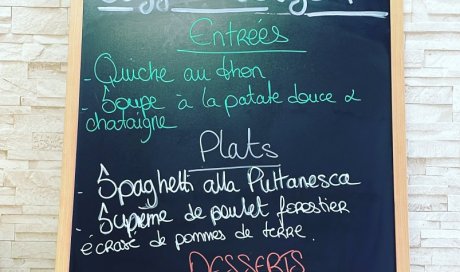 Entrées
- Quiche au thon
- Soupe à la patate douce &
chataigne
Plats
- Spaghetti alla Puttanesca
- Suprême de poulet forestier
écrasé de pommes de terre.
DESSERTS